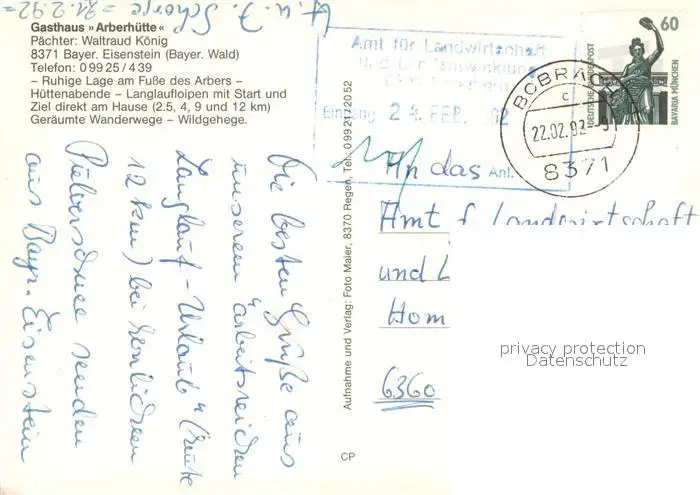 Gasthaus »Arberhütte«
Pächter: Waltraud König
8371 Bayer. Eisenstein (Bayer. Wald)
Telefon: 0 99 25 / 4 39
– Ruhige Lage am Fuße des Arbers –
Hüttenabende – Langlaufloipen mit Start und
Ziel direkt am Hause (2.5, 4, 9 und 12 km)
Geräumte Wanderwege – Wildgehege.
Die besten Grüße aus
unserem "arbeitsreichen
Langlauf-Urlaub" (heute
12 km) bei herrlichem
Pulverschnee senden
aus Bayr. Eisenstein
21.2.92
Aufnahme und Verlag: Foto Maier, 8370 Regen, Tel. 0 99 21 / 20 52
CP
Amt für Landwirtschaft
Eingang 24. FEB.
Anl.
60
DEUTSCHE BUNDESPOST
BAVARIA MÜNCHEN
22.02.92
8371
An das
Amt f. Landwirtschaft
und L
Hom
6360
privacy protection
Datenschutz